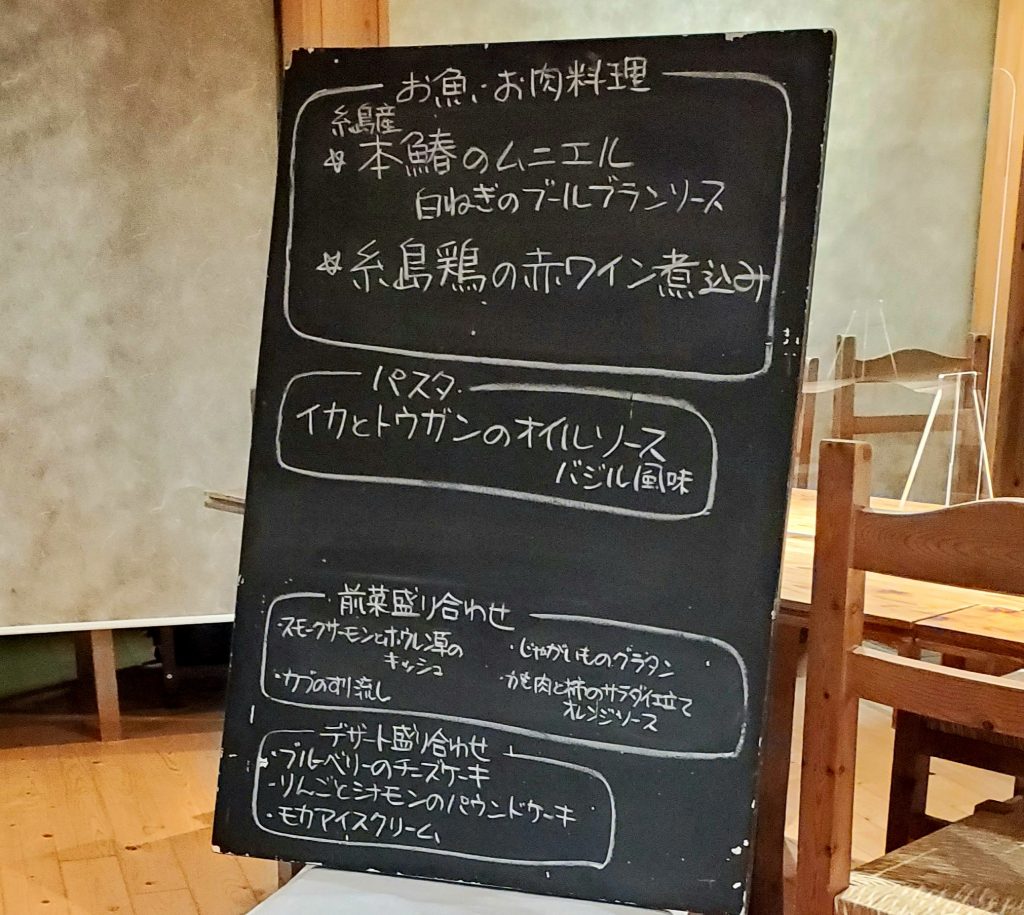 お魚・お肉料理
糸島産
☆本鰆のムニエル
白ねぎのブールブランソース
☆糸島鶏の赤ワイン煮込み
パスタ
イカとトウガンのオイルソース
バジル風味
前菜盛り合わせ
・スモークサーモンとホウレン草の
キッシュ
・カブのすり流し
・じゃがいものグラタン
・かも肉と柿のサラダ仕立て
オレンジソース
デザート盛り合わせ
・ブルーベリーのチーズケーキ
・りんごとシナモンのパウンドケーキ
・モカアイスクリーム